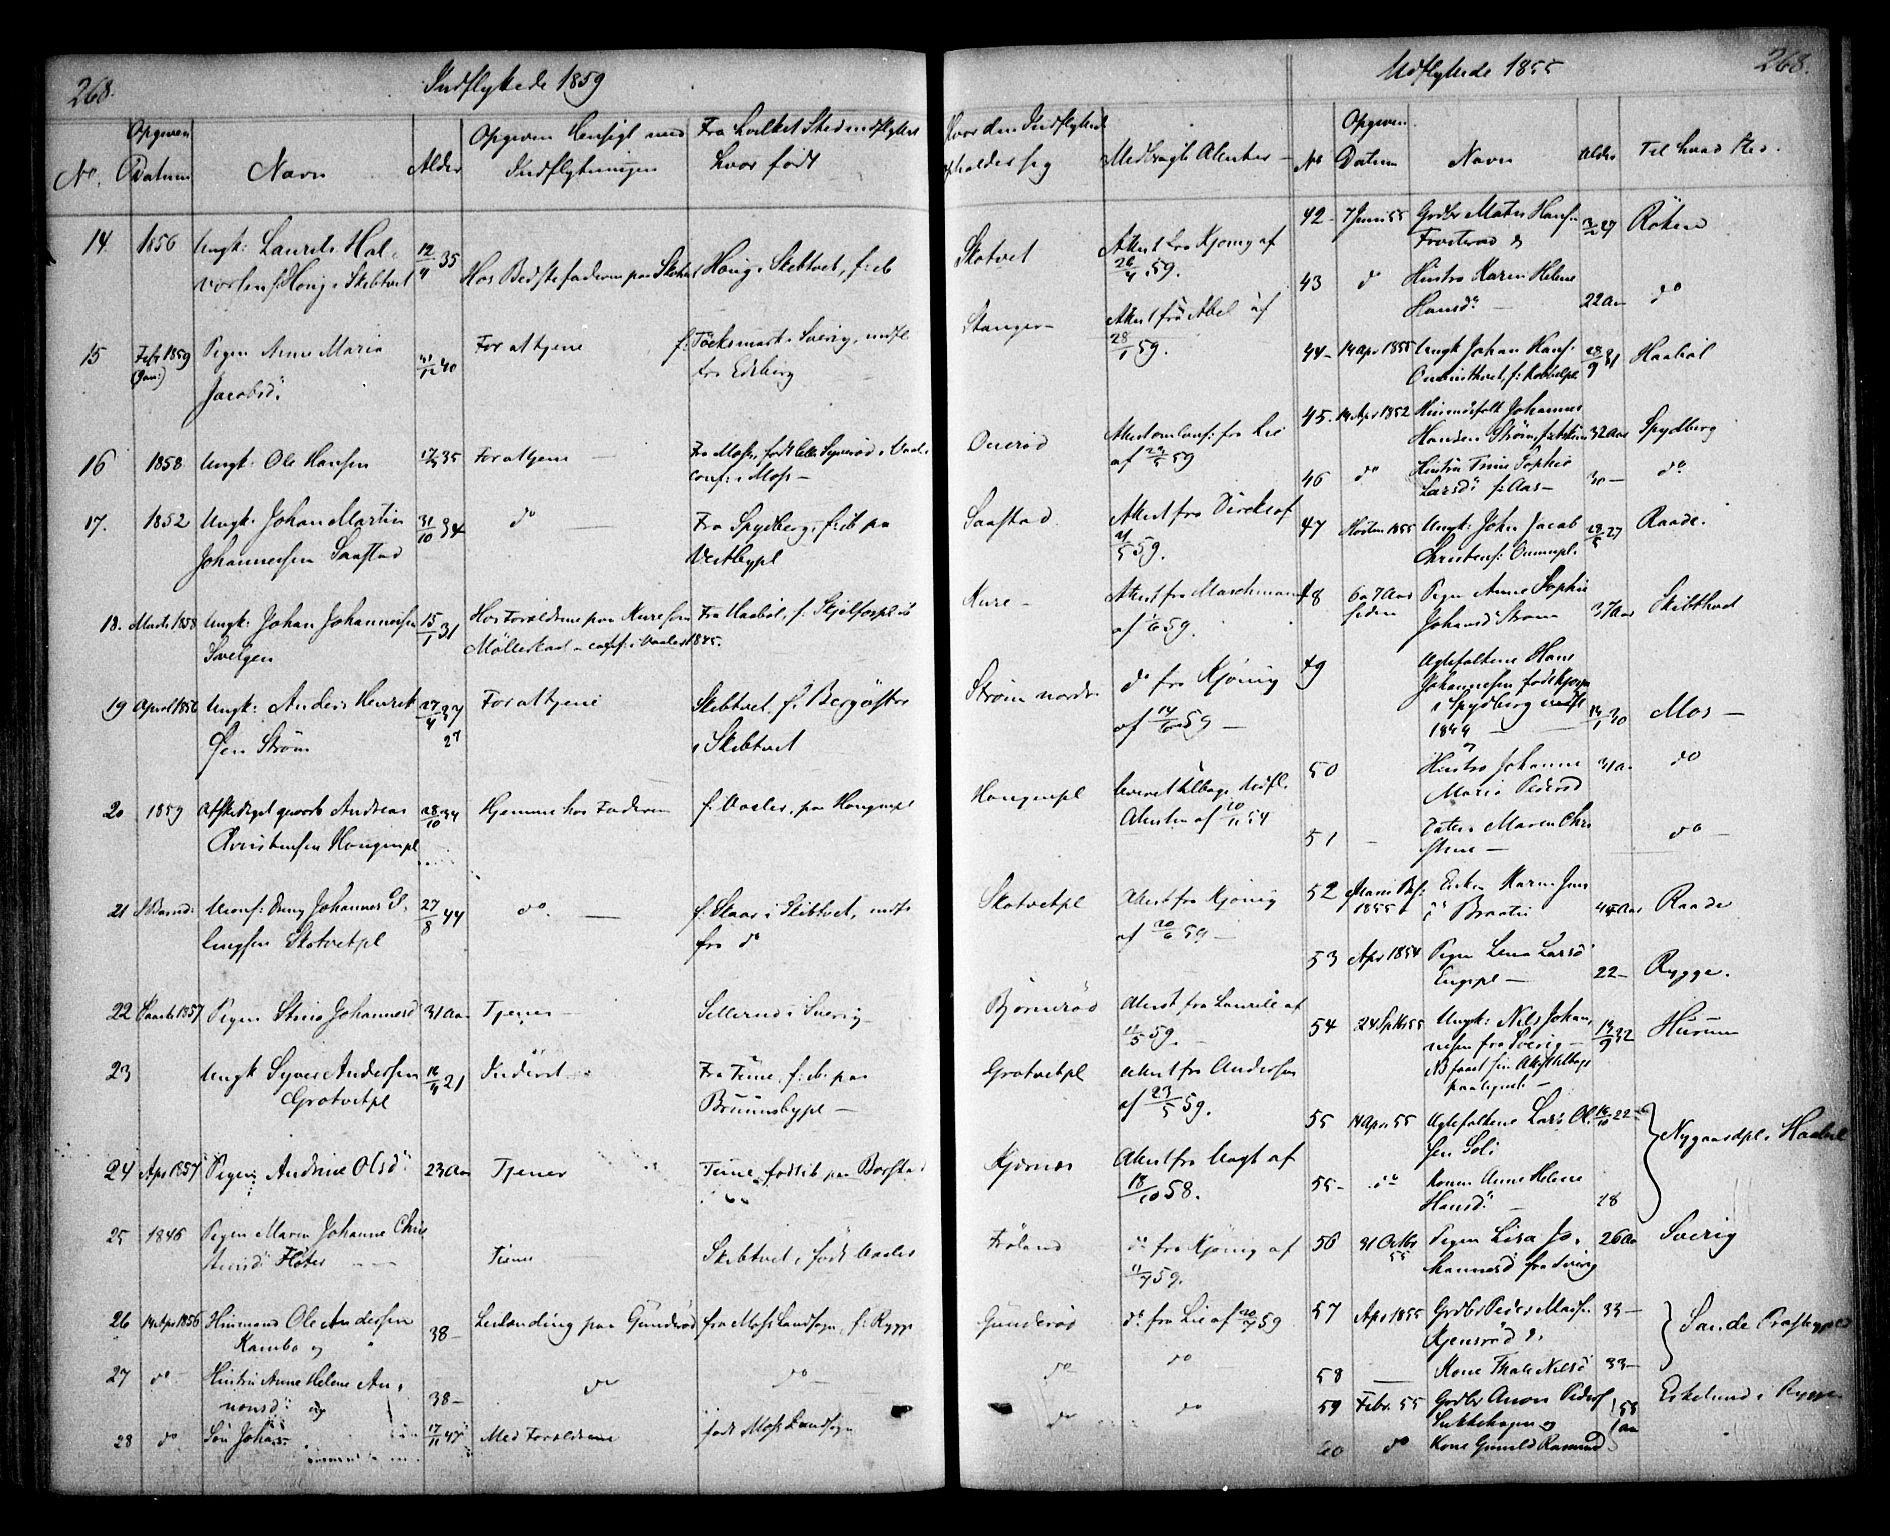 268.
Indflyttede 1859
No. Opgiven Datum Navn Alder Opgiven Hensigt med Indflytningen Fra hvilket Sted indflyttet hvor født
Hvor den Indflyttede opholder sig Medbragte Attester
14. 1856 Ungk: Laurits Hal-
vorsen f: Hong i Skebtvet 12/4 35 Hos Bedstefaderen paa Skotvet Hong i Skebtvet, f: ib Skotvet Attest fra Kjønig af
26/4 59.
15 Febr 1859 Pigen Anne Maria
(Jan:) Jacobsd: 40 For at tjene f: Töcksmark i Sverig, indfl
fra Edsberg Stanger Attest fra Abel af
28/1 59.
16 1858 Ungk: Ole Hansen 35 For at tjene — Fra Moss, født i Vaaler
conf: i Moss — Attest om Conf: fra Lie
af 59
17. 1852 Ungk: Johan Martin
Johannessen Saastad 31/10 34 do — Fra Spydberg, f: ib paa
Vestbypl Saastad. Attest fra Diriks af
59.
18. Marts 1858 Ungk: Johan Johannessen
Svelgen 15/1 31 Hos Forældrene paa Kure som
Møllerkarl — conf: i Vaaler 1845. Fra Haabøl, f: Kure — Attest fra Marschmann
af 59.
19 April 1856 Ungk: Anders Henrik-
sen Strøm 27/4 37
27 For at tjene Skebtvet, f: Bergøstre
i Skebtvet Strøm nordr. do fra Kjønig
af 14/6 59 —
20 1859 Afskediget gevorb. Andreas
Christensen Hongenpl 28/10 34 Hjemme hos Faderen f: Vaaler, paa Hongenpl Hongenpl leveret tilbage Udfl.
Attesten af 54
21 Johannes El-
lingsen Skotvetpl 27/8 44 do — f: Skaar i Skibtvet, indfl
fra do Skotvetpl Attest fra Kjønig
af 20/6 59 —
22 1857 Pigen Stina Johannesd 31 Aar Tjener — Sillerud i Sverig — Bjørnerød Attest fra Laurell af
11/5 59.
23 Ungk Syver Andersen
Grotvetpl 21 Inderst Fra Tune, f: ib paa
Bruunsbypl — Grotvetpl Attest fra Andersen
af 23/5 59.
24 Apr 1857 Pigen Andrine Olsd: 23 Aar Tjener Tune, født ib paa Borstad Kjærnæs Attest fra Vogt af
18/10 58.
25 1846 Pigen Maren Johanne Chri-
stensd: Fløter Tjene — Skebtvet, født i Vaaler Frøland do fra Kjønig af
11/7 59.
26 14 Apr 1856 Huusmand Ole Andersen
Kambo og 38 — Leilænding paa Gunderød fra Moss Landsogn, f: Rygge Gunderød do fra Lie af 20/7 59
27 do — Hustru Anne Helene An-
nonsd: og 38 — do do — do do
28 do Søn Johan 17/11 47 Med Forældrene født Moss Landsogn do do
Udflyttede 1855
268.
No Opgiven Datum Navn Alder Til hvad Sted.
42 — 7 Juni 55 Gaardbr Mates Hans-
Frosterød & 27 Røken
43 do Hustru Karen Helene
Hansd: — 22 Aar do
44 — 14 Apr 1855 Ungk Johan Hans-
28/9 31 Haabøl
45. 14 Apr 1852 Huusmdsfolk Johannes
Hansen Strøm 32 Aar Spydberg
46 do Hustru Trine Sophie
Larsd: f: Aas — 30 — do
47 Høsten 1855 Ungk: John Jacob
Christens: 28/5 27 Raade.
48 6 a 7 Aar
siden Pigen Anne Sophie
Johansd Strøm 37 Aar Skibthvet
49 Ægtefolkene Hans
Johannesen født
i Spydberg indfl
1844 — 30 Mos —
50 Hustru Johanne
Maria Pedersd 31 Aar do
51 — Datter Maren Chri-
stine — do —
52 1855 Enken Karn Jens-
d: Braaten Aar Raade
53 Apr 1854 Pigen Lena Larsd
Engepl — 22 — Rygge.
54 24 Sptbr 55 Ungk: Nils Johan-
nesen fra Sverig — 14/9 32 Hurum
NB faaet sin Attest tilbage
paategnet —
55 14 Apr. 55 Ægtefolkene Lars Ol-
sen Soli 14/10 22 Nygaardpl i Haabøl
55 — do Konen Anne Helene
Hansd: — 28
56 31 Octbr
55 Pigen Lisa Jo-
hannesd fra Sverig 26 Aar Sverig
57 Apr 1855 Gaardbr Peder Mads-
Kjensrød & 33 — Sande Præstegjeld
58 — Kone Thale Nilsd 33 —
59 Febr. 55 Gaardbr Anon Peders-
Sukkehagen og 58
Aar Eskelund i Rygge
60 do Kone Gunild Rasmusd